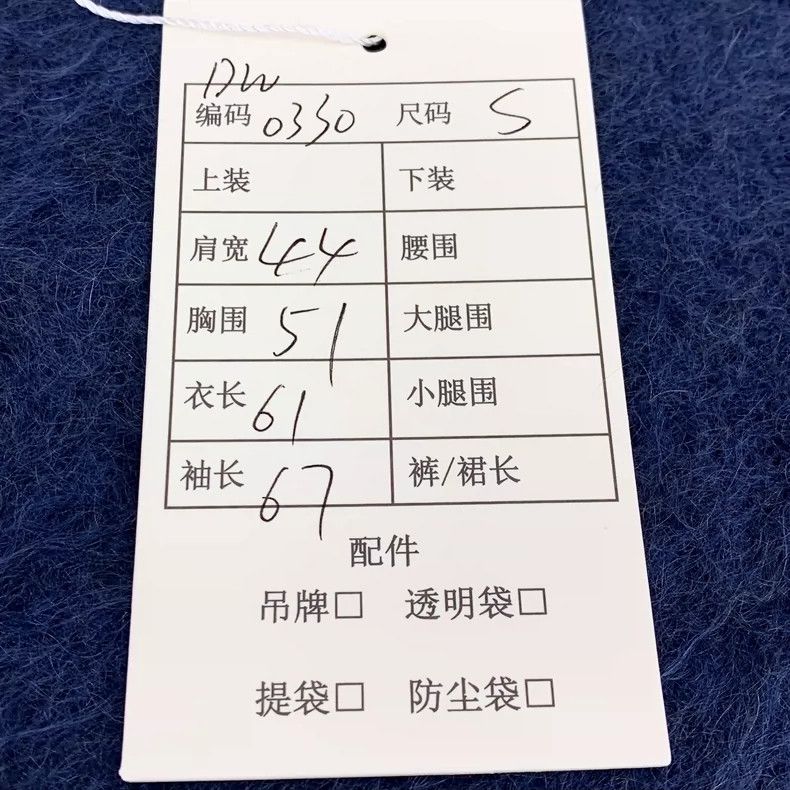 DW
编码 0330 尺码 S
上装 下装
肩宽 44 腰围
胸围 51 大腿围
衣长 61 小腿围
袖长 67 裤/裙长
配件
吊牌□ 透明袋□
提袋□ 防尘袋□